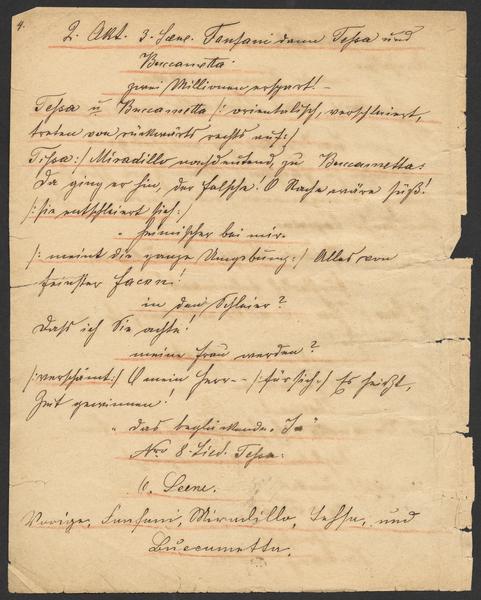 4.
2. Akt. 3. Scene. Fanfani dann Tessa und
Buccametta.
zwei Millionen erspart! –
Tessa u Buccametta /: orientalisch, verschleiert,
treten von rückwärts rechts auf :/
Tessa :/ Miradillo nachdeutend, zu Buccametta:
Da ging er hin, der falsche! O Rache wäre süß!
/: sie entschleiert sich :/
" heimischer bei mir.
/: meint die ganze Umgebung :/ Alles von
feinster facon!
in den Schleier?
Daß ich Sie achte!
meine Frau werden?
/: verschämt :/ O mein Herr -- /: für sich :/ Es heißt,
Zeit gewinnen!
" das beglückende "Ja"
Nro 8. Lied. Tessa.
6. Scene.
Vorige, Fanfani, Miradillo, Tessa, und
Buccametta.